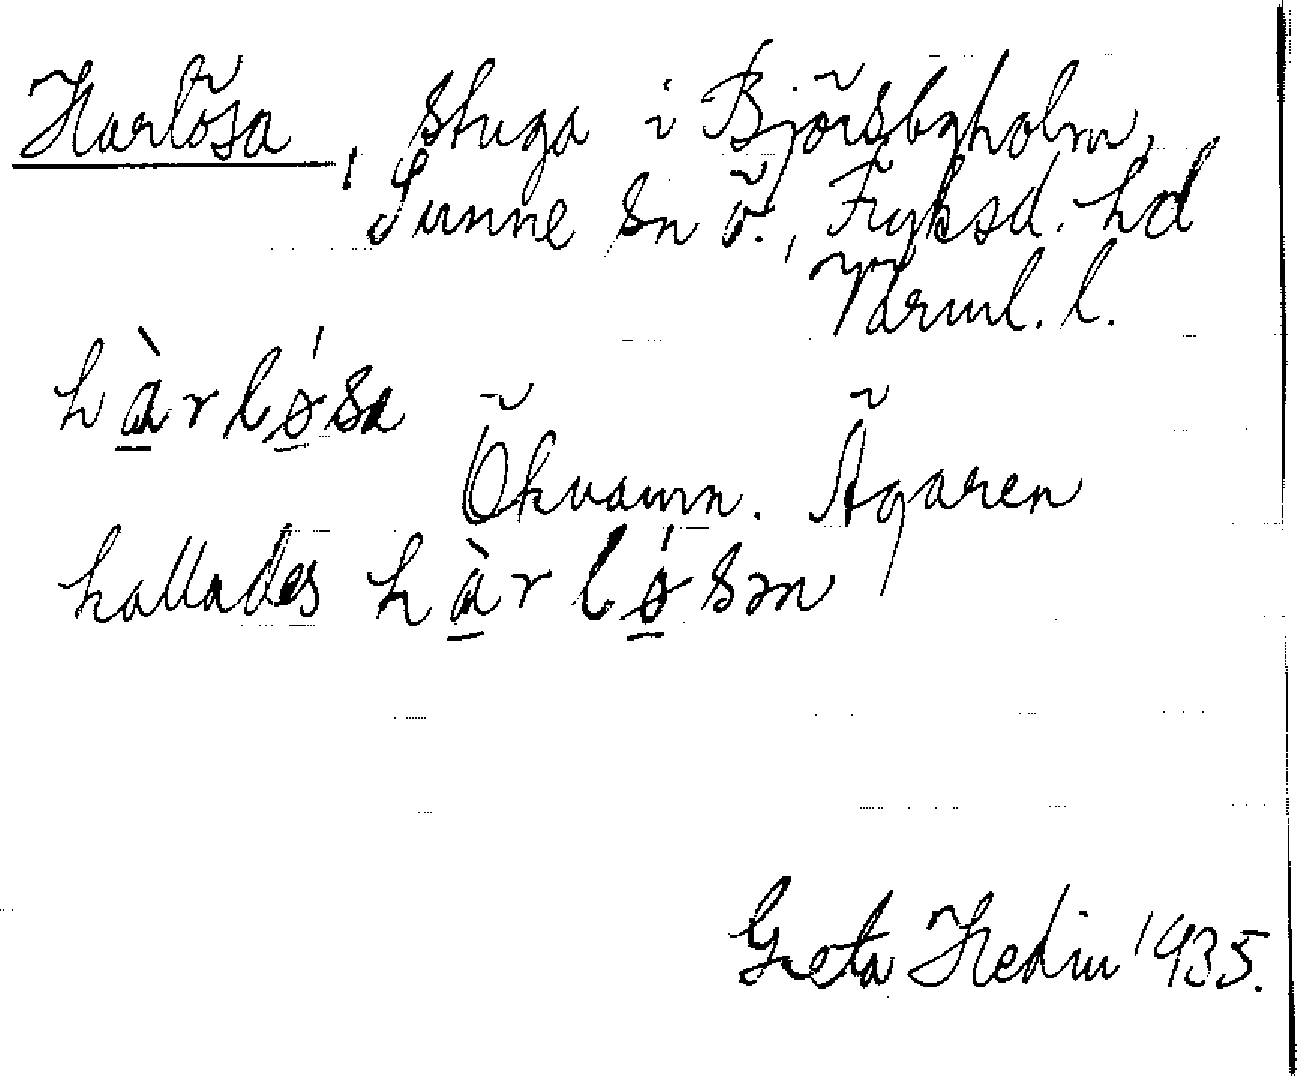 Harlösa, stuga i Björsbyholm,
Sunne sn ö., Fryksd. hd
Värml. l.
hàrlǿsa
Öknamn. Ägaren
kallades hàrlǿsən
Greta Hedin 1935.